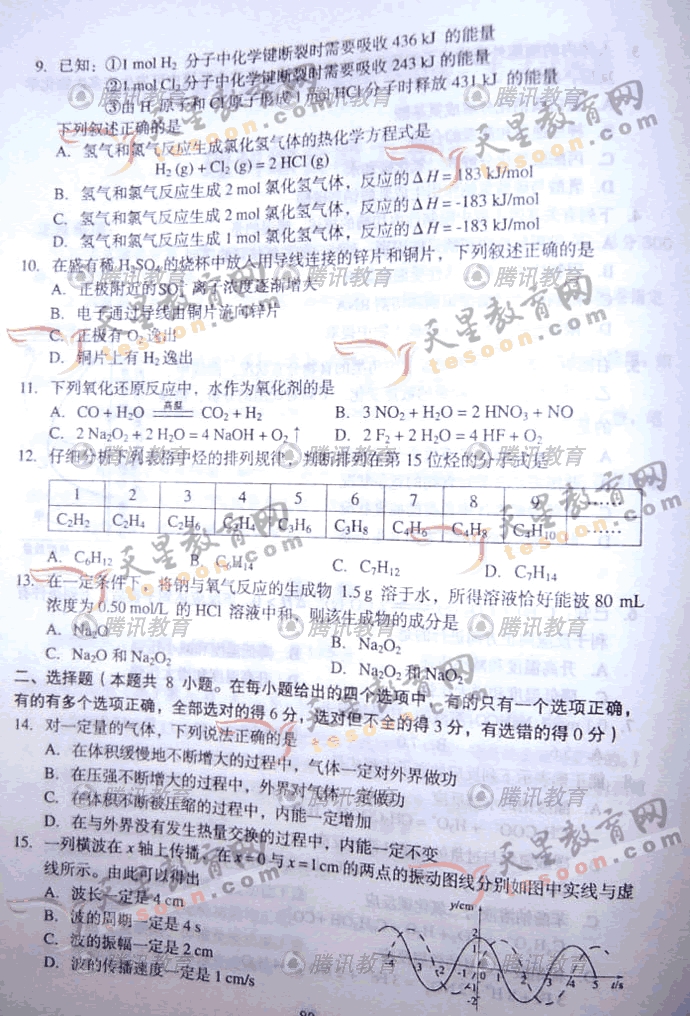 9. 已知：①1 mol H₂ 分子中化学键断裂时需要吸收 436 kJ 的能量
②1 mol Cl₂ 分子中化学键断裂时需要吸收 243 kJ 的能量
③由 H 原子和 Cl 原子形成 1 mol HCl 分子时释放 431 kJ 的能量
下列叙述正确的是
A. 氢气和氯气反应生成氯化氢气体的热化学方程式是
H₂ (g) + Cl₂ (g) = 2 HCl (g)
B. 氢气和氯气反应生成 2 mol 氯化氢气体，反应的 Δ H = 183 kJ/mol
C. 氢气和氯气反应生成 2 mol 氯化氢气体，反应的 Δ H = -183 kJ/mol
D. 氢气和氯气反应生成 1 mol 氯化氢气体，反应的 Δ H = -183 kJ/mol
10. 在盛有稀 H₂SO₄ 的烧杯中放入用导线连接的锌片和铜片，下列叙述正确的是
A. 正极附近的SO₄²⁻ 离子浓度逐渐增大
B. 电子通过导线由铜片流向锌片
C. 正极有 O₂ 逸出
D. 铜片上有 H₂ 逸出
11. 下列氧化还原反应中，水作为氧化剂的是
A. CO + H₂O =高温= CO₂ + H₂ B. 3 NO₂ + H₂O = 2 HNO₃ + NO
C. 2 Na₂O₂ + 2 H₂O = 4 NaOH + O₂ ↑ D. 2 F₂ + 2 H₂O = 4 HF + O₂
12. 仔细分析下列表格中烃的排列规律，判断排列在第 15 位烃的分子式是
1 2 3 4 5 6 7 8 9 ……
C₂H₂ C₂H₄ C₂H₆ C₃H₄ C₃H₆ C₃H₈ C₄H₆ C₄H₈ C₄H₁₀ ……
A. C₆H₁₂ B. C₆H₁₄ C. C₇H₁₂ D. C₇H₁₄
13. 在一定条件下，将钠与氧气反应的生成物 1.5 g 溶于水，所得溶液恰好能被 80 mL
浓度为 0.50 mol/L 的 HCl 溶液中和，则该生成物的成分是
A. Na₂O B. Na₂O₂
C. Na₂O 和 Na₂O₂ D. Na₂O₂ 和 NaO₂
二、选择题（本题共 8 小题。在每小题给出的四个选项中，有的只有一个选项正确，
有的有多个选项正确，全部选对的得 6 分，选对但不全的得 3 分，有选错的得 0 分）
14. 对一定量的气体，下列说法正确的是
A. 在体积缓慢地不断增大的过程中，气体一定对外界做功
B. 在压强不断增大的过程中，外界对气体一定做功
C. 在体积不断被压缩的过程中，内能一定增加
D. 在与外界没有发生热量交换的过程中，内能一定不变
15. 一列横波在 x 轴上传播，在 x = 0 与 x = 1 cm 的两点的振动图线分别如图中实线与虚
线所示。由此可以得出
A. 波长一定是 4 cm
B. 波的周期一定是 4 s
C. 波的振幅一定是 2 cm
D. 波的传播速度一定是 1 cm/s
y/cm
t/s
腾讯教育
天星教育网
tesoon.com